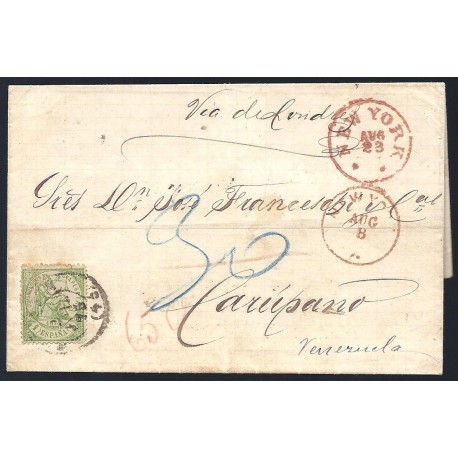 Via de Londres
NEW YORK
AUG
23
N. Y.
AUG
8
Sres Dn José Franceschi & Ca
30
Carúpano
Venezuela
ESPAÑA